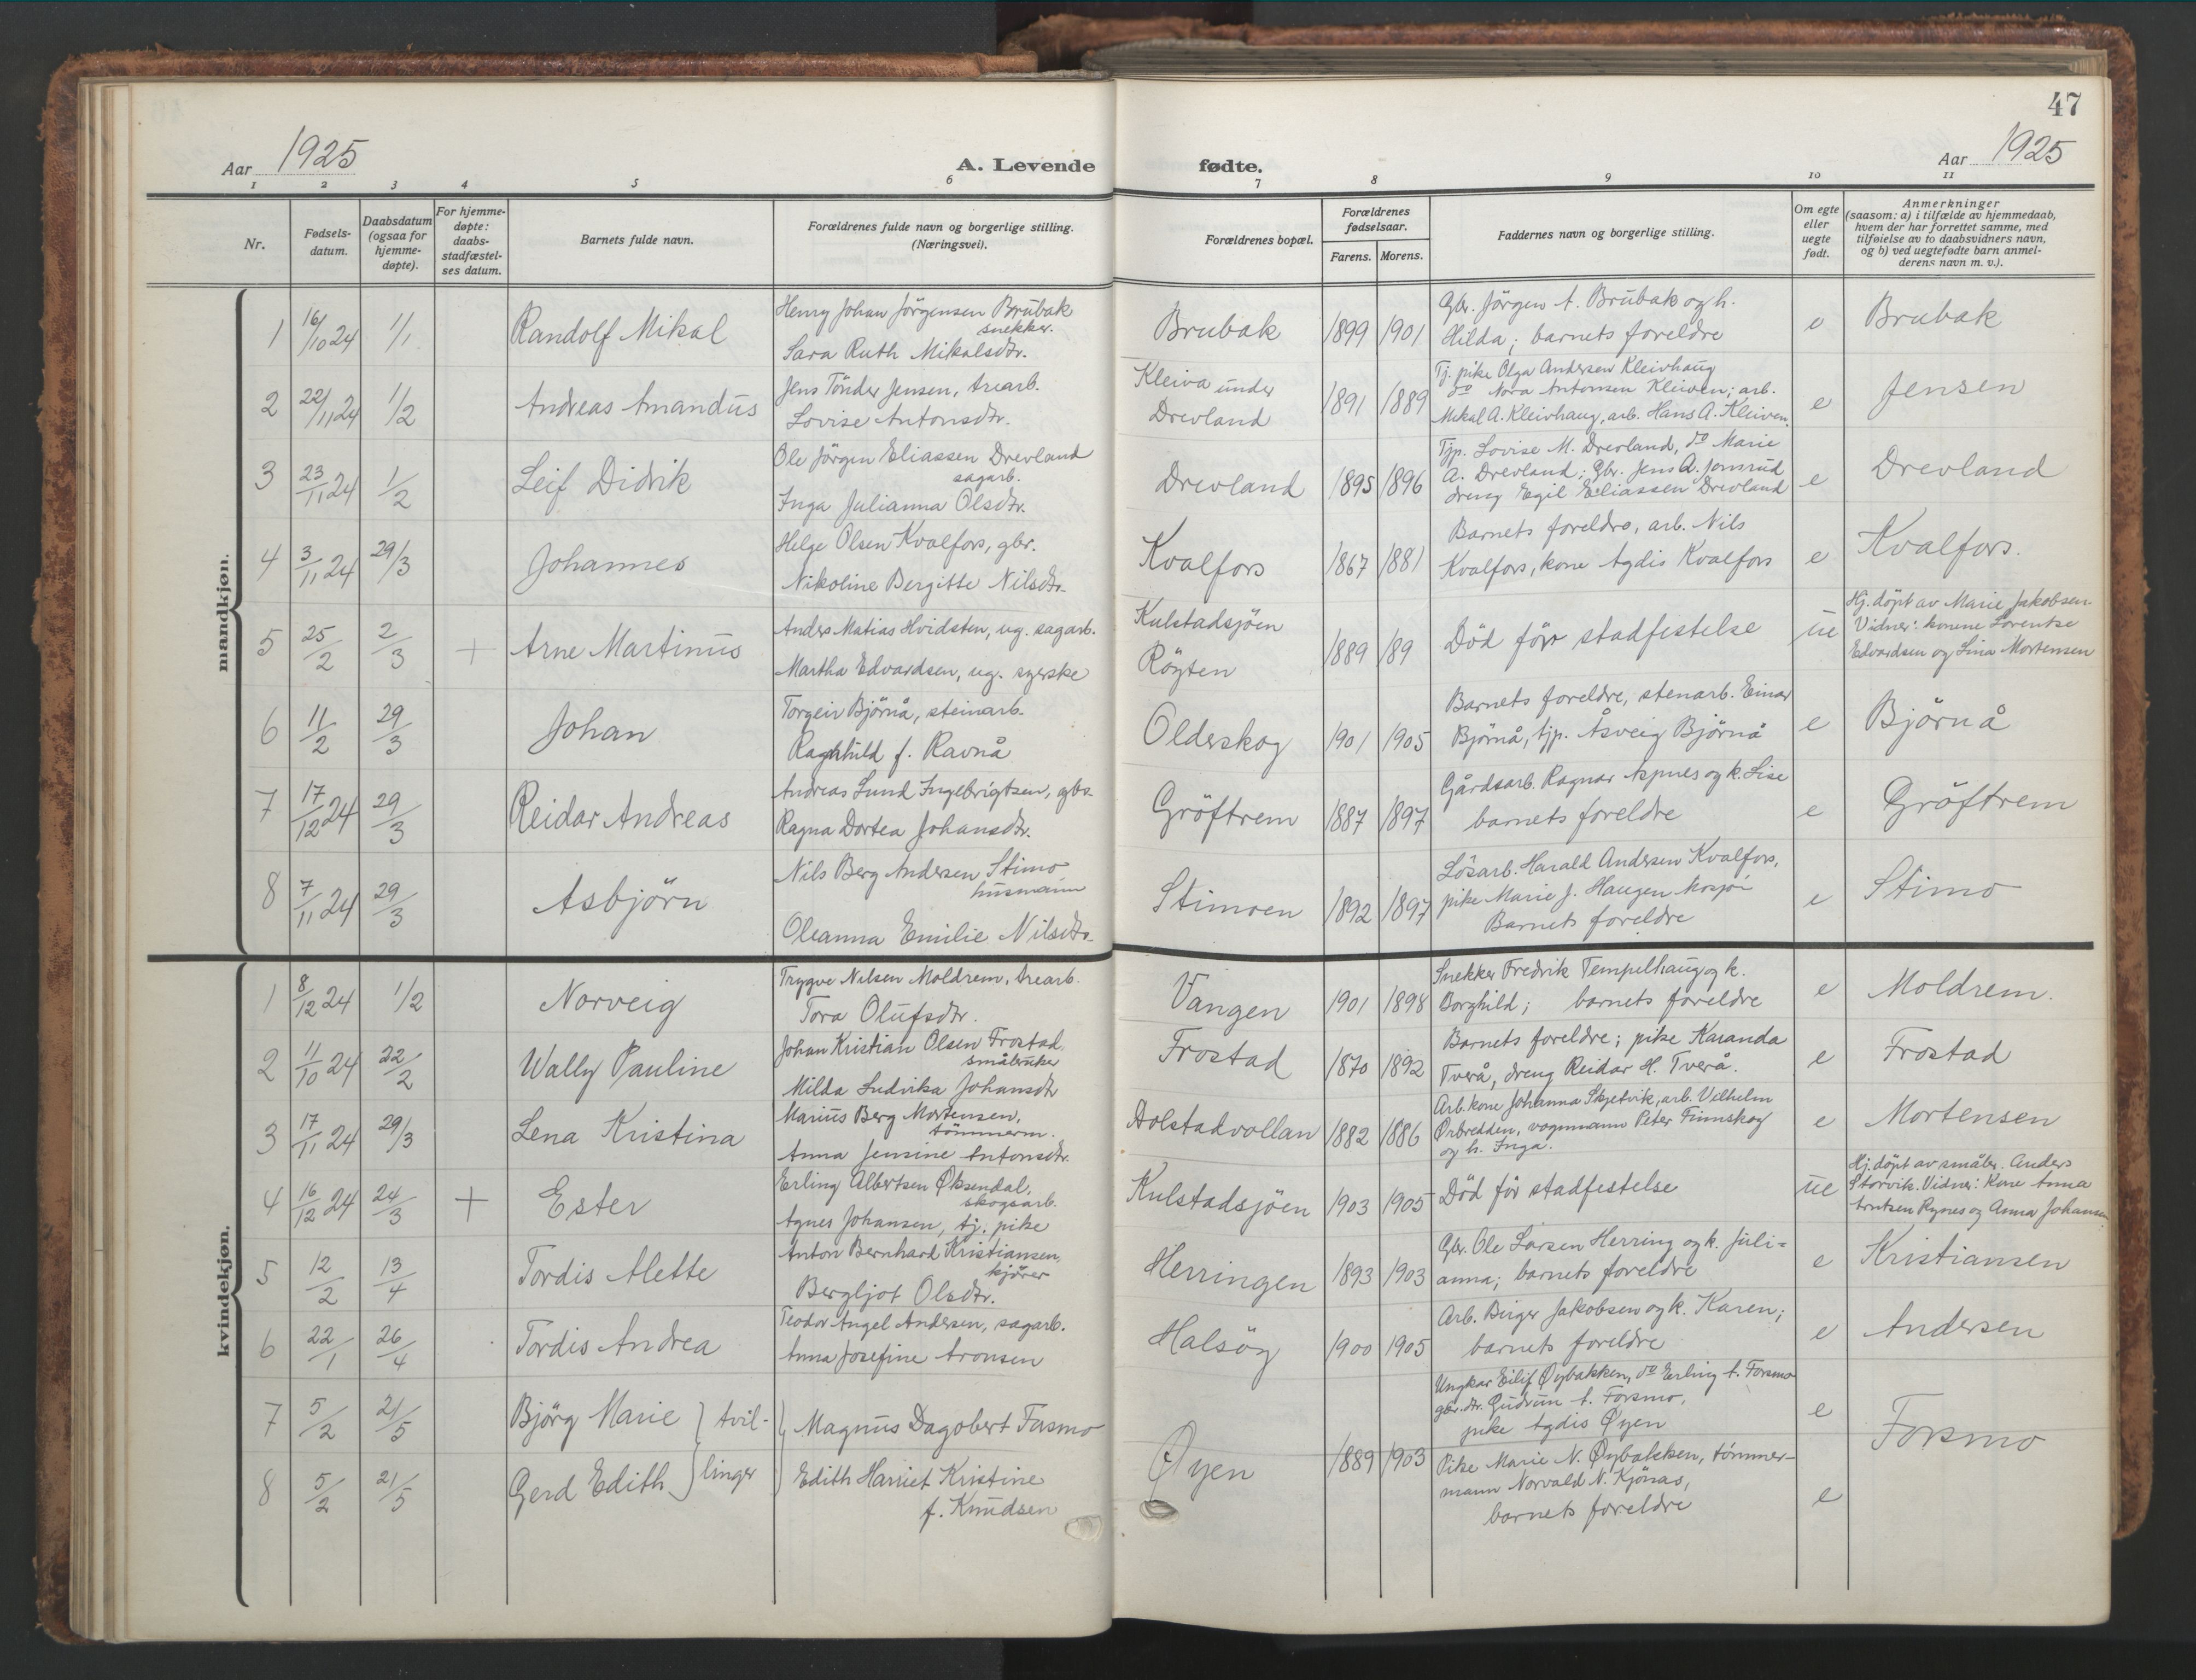 47
Aar 1925
A. Levende fødte.
Aar 1925
1 2 3 4 5 6 7 8 9 10 11
Nr.
Fødsels-
datum.
Daabsdatum
(ogsaa for
hjemme-
døpte).
For hjemme-
døpte:
daabs-
stadfæstel-
ses datum.
Barnets fulde navn.
Forældrenes fulde navn og borgerlige stilling.
(Næringsvei).
Forældrenes bopæl.
Forældrenes
fødselsaar.
Farens. Morens.
Faddernes navn og borgerlige stilling.
Om egte
eller
uegte
født.
Anmerkninger
(saasom: a) i tilfælde av hjemmedaab,
hvem der har forrettet samme, med
tilføielse av to daabsvidners navn,
og b) ved uegtefødte barn anmel-
derens navn m. v.).
mandkjøn.
1 16/10 24 1/1 Randolf Mikal
Henry Johan Jörgensen Brubak
snekker.
Sara Ruth Mikalsdtr.
Brubak 1899 1901
Gbr. Jörgen A. Brubak og h.
Hilda; barnets foreldre
e Brubak
2 22/11 24 1/2 Andreas Amandus
Jens Tönder Jensen, trearb.
Lovise Antonsdtr.
Kleiva under
Drevland
1891 1889
Tj. pike Olga Andersen Kleivhaug
do Nora Antonsen Kleiven; arb.
Mikal A. Kleivhaug, arb. Hans A. Kleiven.
e Jensen
3 23/11 24 1/2 Leif Didrik
Ole Jörgen Eliassen Drevland
sagarb.
Inga Julianna Olsdtr.
Drevland 1895 1896
Tjp. Lovise M. Drevland, do Marie
A. Drevland; Gbr. Jens A. Jonsrud
dreng Egil Eliassen Drevland
e Drevland
4 3/11 24 29/3 Johannes
Helge Olsen Kvalfors, gbr.
Nikoline Bergitte Nilsdtr.
Kvalfors 1867 1881
Barnets foreldre, arb. Nils
Kvalfors, kone Agdis Kvalfors
e Kvalfors.
5 25/2 2/3 + Arne Martinus
Anders Matias Hvidsten, ug. sagarb.
Martha Edvardsen, ug. syerske
Kulstadsjöen
Röyten
1889 /89
Död för stadfestelse
ue
Hj. döpt av Marie Jakobsen.
Vidner: konene Lorentse
Edvardsen og Lina Mortensen
6 11/2 29/3 Johan
Torgeir Björnå, steinarb.
Ragnhild f. Ravnå
Olderskog 1901 1905
Barnets foreldre, stenarb. Einar
Björnå, tjp. Åsveig Björnå
e Björnå
7 17/12 24 29/3 Reidar Andreas
Andreas Lund Ingebrigtsen, gbr.
Ragna Dortea Johansdtr.
Gröftrem 1887 1897
Gårdsarb. Ragnar Aspnes og k. Lise
barnets foreldre
e Gröftrem
8 7/11 24 29/3 Asbjörn
Nils Berg Andersen Stimo
husmann
Oleanna Emilie Nilsdtr.
Stimoen 1892 1897
Lösarb. Harald Andersen Kvalfors,
pike Marie J. Haugen
Barnets foreldre
e Stimo
kvindekjøn.
1 8/12 24 1/2 Norveig
Trygve Nilsen Moldrem, trearb.
Tora Olufsdtr.
Vangen 1901 1898
Snekker Fredrik Tempelhaug og k.
Borghild; barnets foreldre
e Moldrem.
2 11/10 24 22/2 Wally Pauline
Johan Kristian Olsen Frostad,
småbruker
Milda Ludvika Johansdtr
Frostad 1870 1892
Barnets foreldre; pike Karanda
Tverå, dreng Reidar H. Tverå.
e Frostad
3 17/11 24 29/3 Lena Kristina
Marius Berg Mortensen,
tömmerm.
Anna Jensine Antonsdtr.
Dolstadvollan 1882 1886
Arb. kone Johanna Skjetvik, arb. Vilhelm
Ørbredden, vognmann Peter Finnskog
og h. Inga.
e Mortensen
4 16/12 24 24/3 + Ester
Erling Albertsen Øksendal,
skogsarb.
Agnes Johansen, tj. pike
Kulstadsjöen 1903 1905
Död för stadfestelse
ue
Hj. döpt av småbr. Anders
Storvik. Vidner: Kone Anna
Arntsen Rynes og Anna Johansen.
5 12/2 13/4 Tordis Alette
Anton Bernhard Kristiansen,
kjörer
Bergljot Olsdtr.
Herringen 1893 1903
Gbr. Ole Larsen Herring og k. Juli=
anna; barnets foreldre
e Kristiansen
6 22/1 26/4 Tordis Andrea
Teodor Angel Andersen, sagarb.
Anna Josefine Aronsen
Halsöy 1900 1905
Arb. Birger Jakobsen og k. Karen;
barnets foreldre
e Andersen
7 5/2 21/5 Björg Marie } tvil-
Magnus Dagobert Forsmo
Øyen 1889 1903
Ungkar Eilif Øybakken, do Erling A. Forsmo
gbr. dtr. Gudrun A. Forsmo,
pike Agdis Øyen
e Forsmo
8 5/2 21/5 Gerd Edith } linger
Edith Harriet Kristine
f. Knudsen
Pike Marie N. Øybakken, tömmer-
mann Norvald N. Kjönas,
barnets foreldre
e